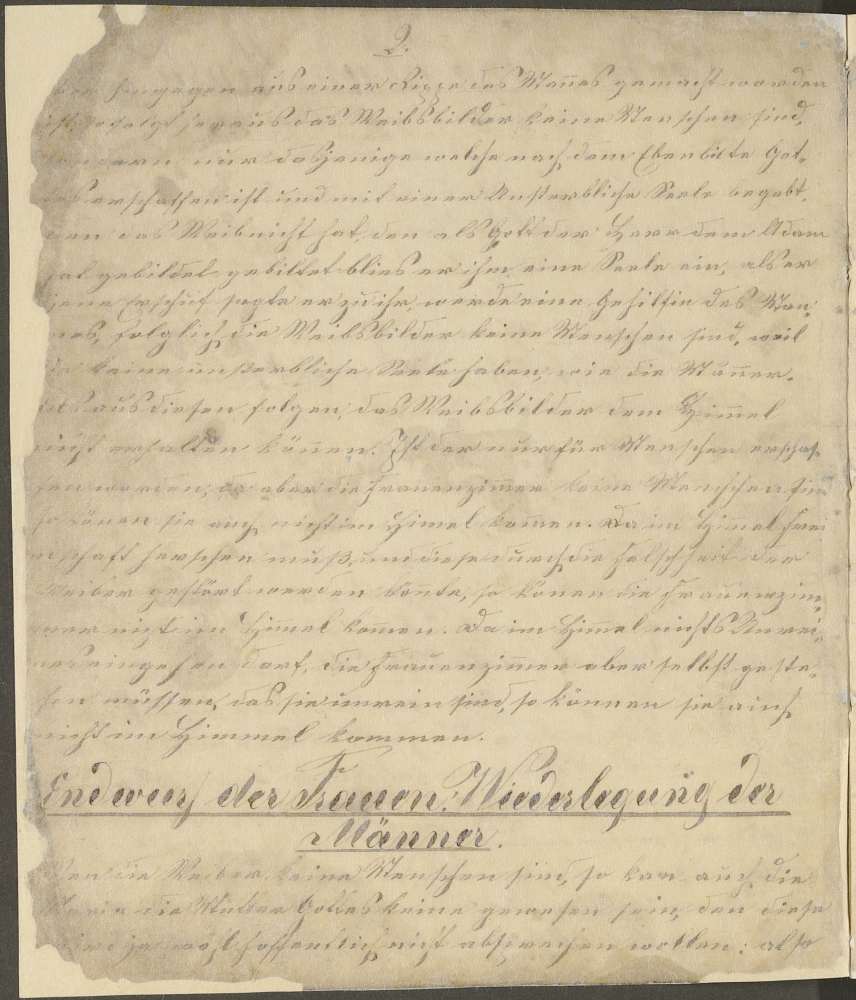 2.
hingegen aus einer Rippe des Mañes gemacht worden
ist, so folgt hieraus das Weibsbilder keine Menschen sind,
sondern nur dasjenige welche nach dem Ebenbilde Got-
tes erschaffen ist und mit einer Unsterbliche Seele begabt,
das Weib nicht hat, den als Gott der Herr dem Adam
hat gebildet gebildet blies er ihm eine Seele ein, als er
jene erschuf sagte er zu ihr, werde eine Gehilfin des Man-
nes, folglich die Weibsbilder keine Menschen sind, weil
sie keine unsterbliche Seele haben, wie die Mäñer.
aus diesen folgen, das Weibsbilder dem Him̄el
nicht erhalten köñen. Ist der nur für Menschen erschaf-
fen worden, da aber die Frauenzim̄er keine Menschen sind
so könen sie auch nicht im Himel kom̄en. Da im Himel
herschen muß, und diese durch die Falschheit der
Weiber gestört werden köñte, so könen die Frauenzim-
mer nicht im Himel kom̄en. Da im Him̄el nichts Unrei-
nes eingehen darf, die Frauenzim̄er aber selbst geste-
hen müssen, das sie unrein sind, so können sie auch
nicht im Himmel kommen.
Endwurf der Frauen. Wiederlegung der
Männer.
Wen die Weiber keine Menschen sind, so kan auch die
Maria die Mutter Gottes keine gewesen sein, den diese
hoffentlich nicht absprechen wollen: also